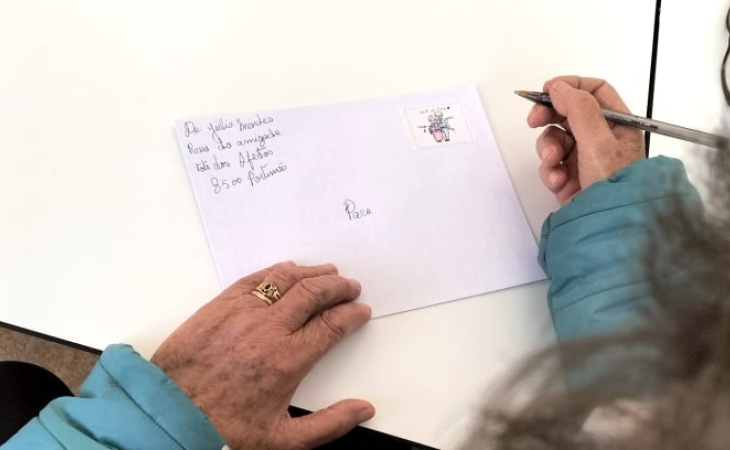 De Júlio Mendes
Rua da amizade
Lote dos Afetos
8500 Portimão
Para